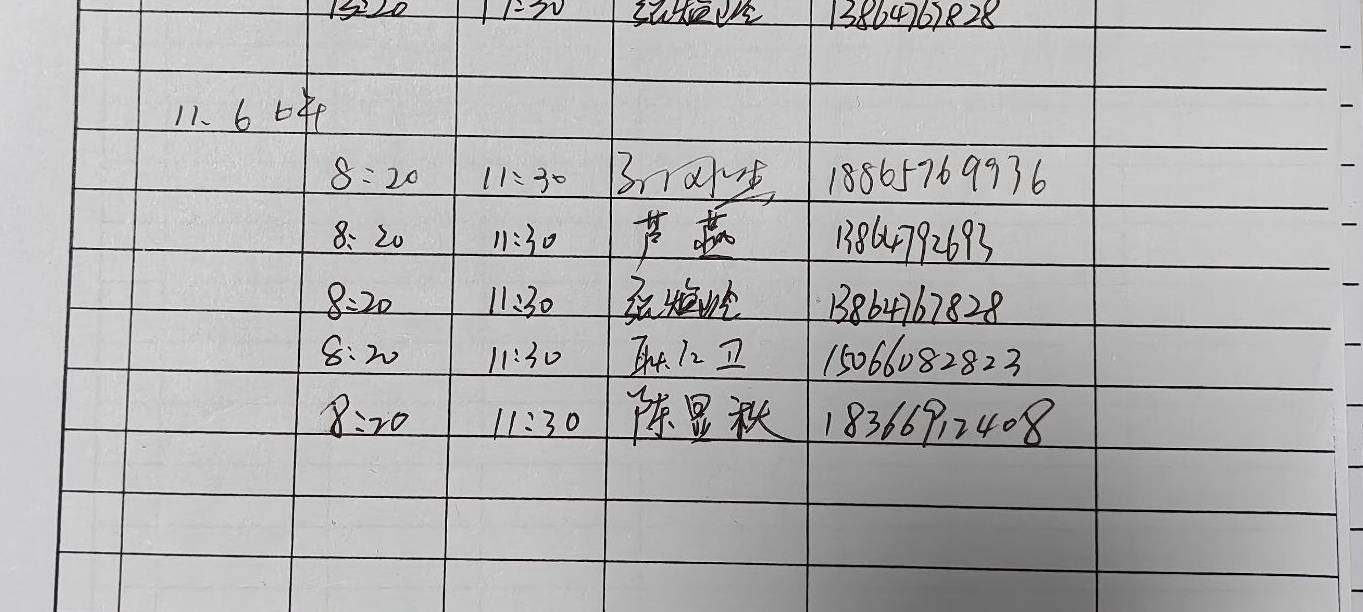 13:20 17:30 13864767828
11.6 上午
8:20 11:30 18865769936
8:20 11:30 芦蕊 13864792693
8:20 11:30 13864767828
8:20 11:30 卫 15066082823
8:20 11:30 陈显秋 18366912408